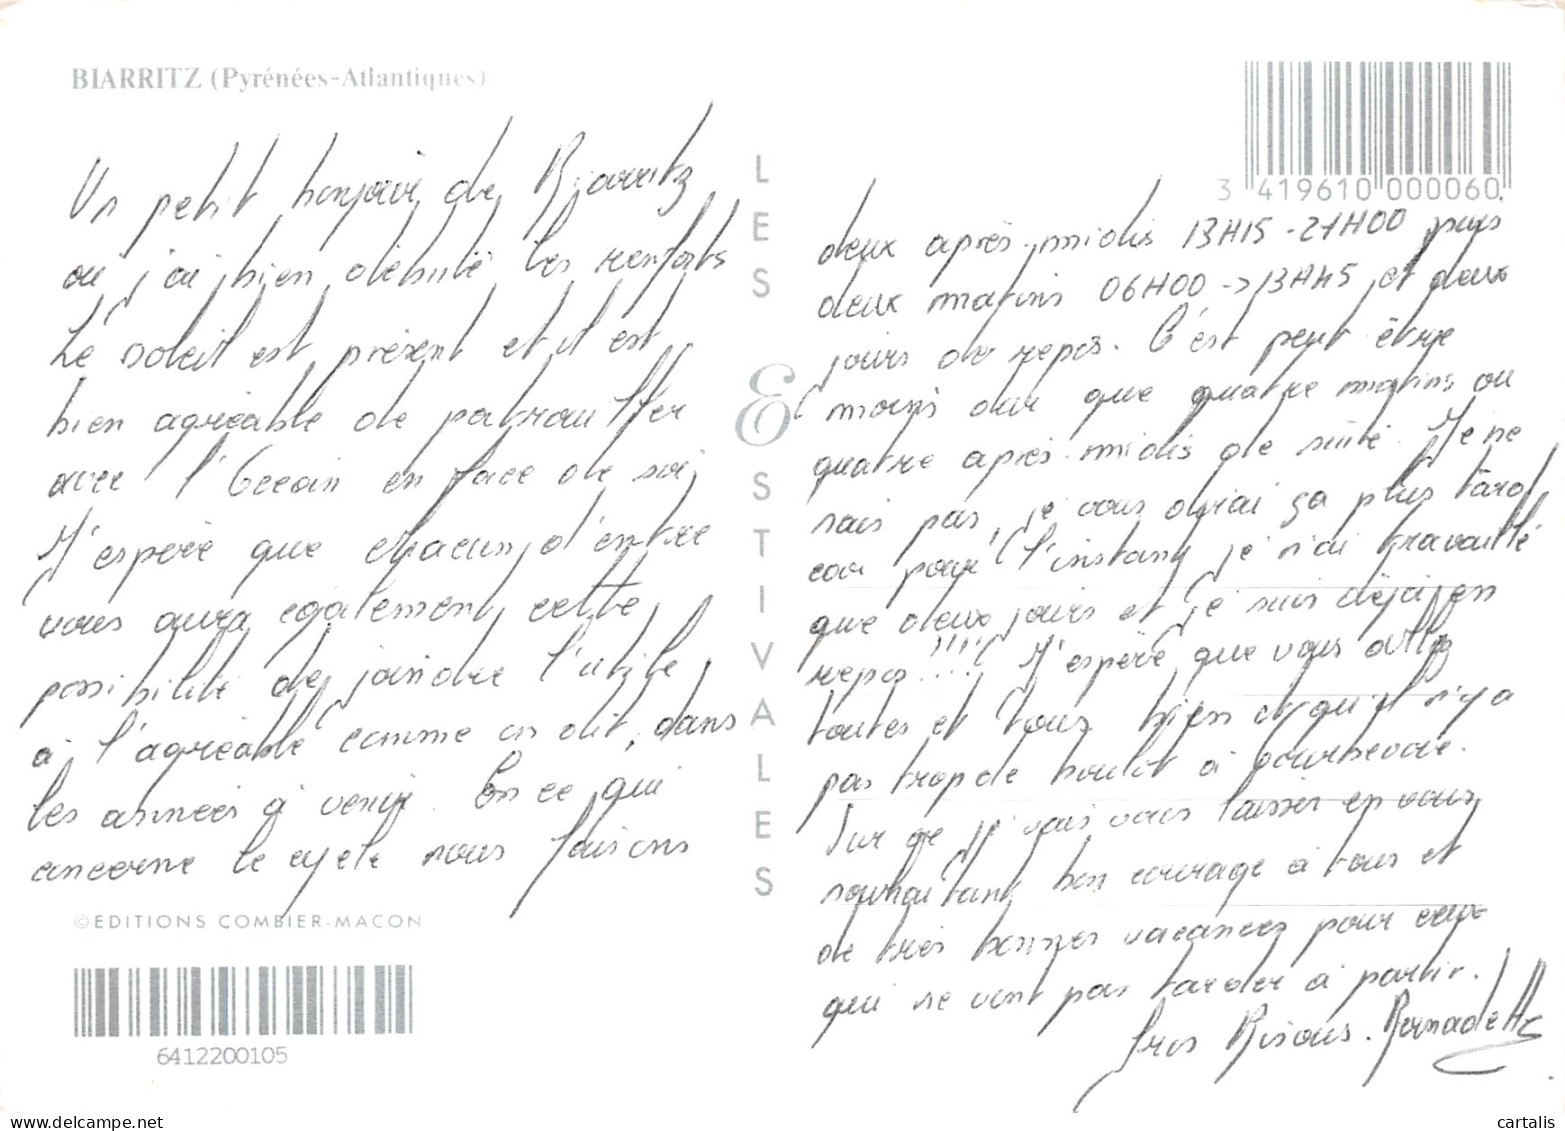 BIARRITZ (Pyrénées-Atlantiques)
Un petit bonjour de Biarritz
où j'ai bien débuté les renforts
Le soleil est présent et il est
bien agréable de patrouiller
avec l'Océan en face de soi
J'espère que chacun d'entre
vous aura également cette
possibilité de joindre l'utile
à l'agréable comme on dit, dans
les années à venir. En ce qui
concerne le cycle nous faisons
©EDITIONS COMBIER-MACON
6412200105
LES ESTIVALES
E
3 419610 000060
deux après-midis 13H15-21H00 puis
deux matins 06H00 -> 13H45 et deux
jours de repos. C'est peut être
moins dur que quatre matins ou
quatre après-midis de suite. Je ne
sais pas, je vous dirai ça plus tard,
car pour l'instant je n'ai travaillé
que deux jours et je suis déjà en
repos !!!! J'espère que vous allez
toutes et tous bien et qu'il n'y a
pas trop de boulot à Courbevoie.
Sur ce je vais vous laisser en vous
souhaitant bon courage à tous et
de très bonnes vacances pour ceux
qui ne vont pas tarder à partir.
Gros Bisous. Bernadette
cartalis
www.delcampe.net